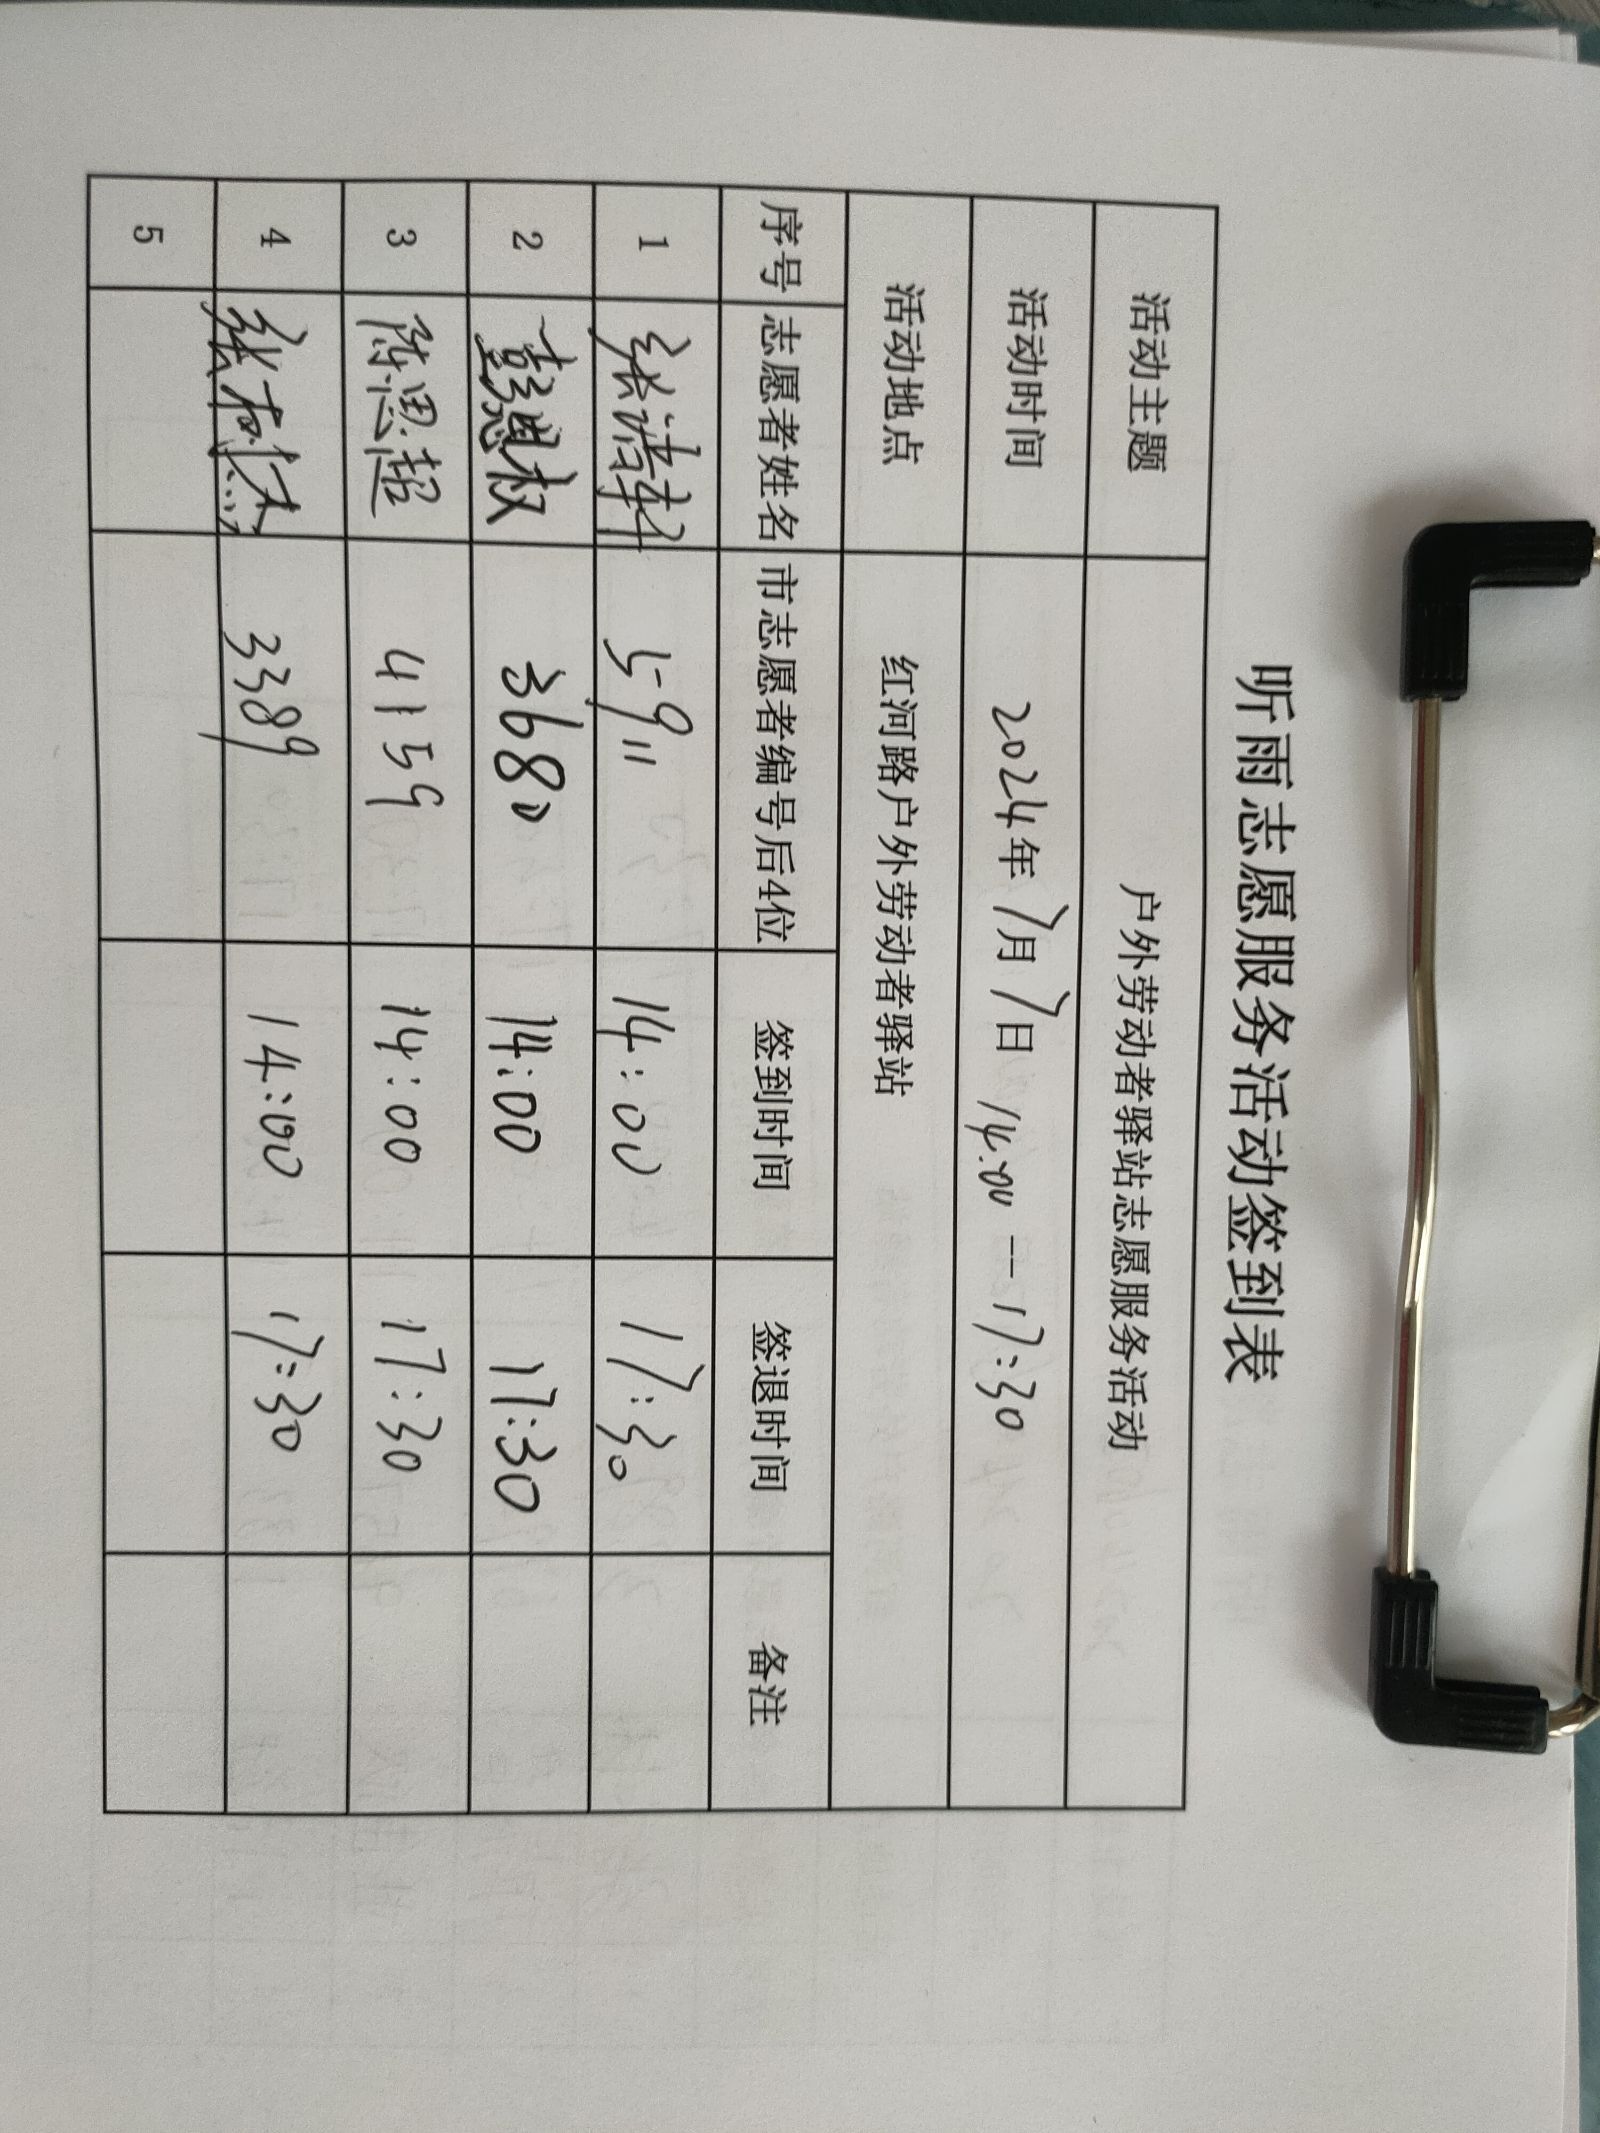 听雨志愿服务活动签到表
活动主题 户外劳动者驿站志愿服务活动
活动时间 2024年7月7日 14:00 -- 17:30
活动地点 红河路户外劳动者驿站
序号 志愿者姓名 市志愿者编号后4位 签到时间 签退时间 备注
1 张浩轩 5911 14:00 17:30
2 彭思权 3680 14:00 17:30
3 陈思超 4159 14:00 17:30
4 3389 14:00 17:30
5